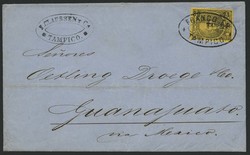 TAMPICO.
FRANCO
Señores
Oetling Droege &Co.
Guanajuato
via Mexico.